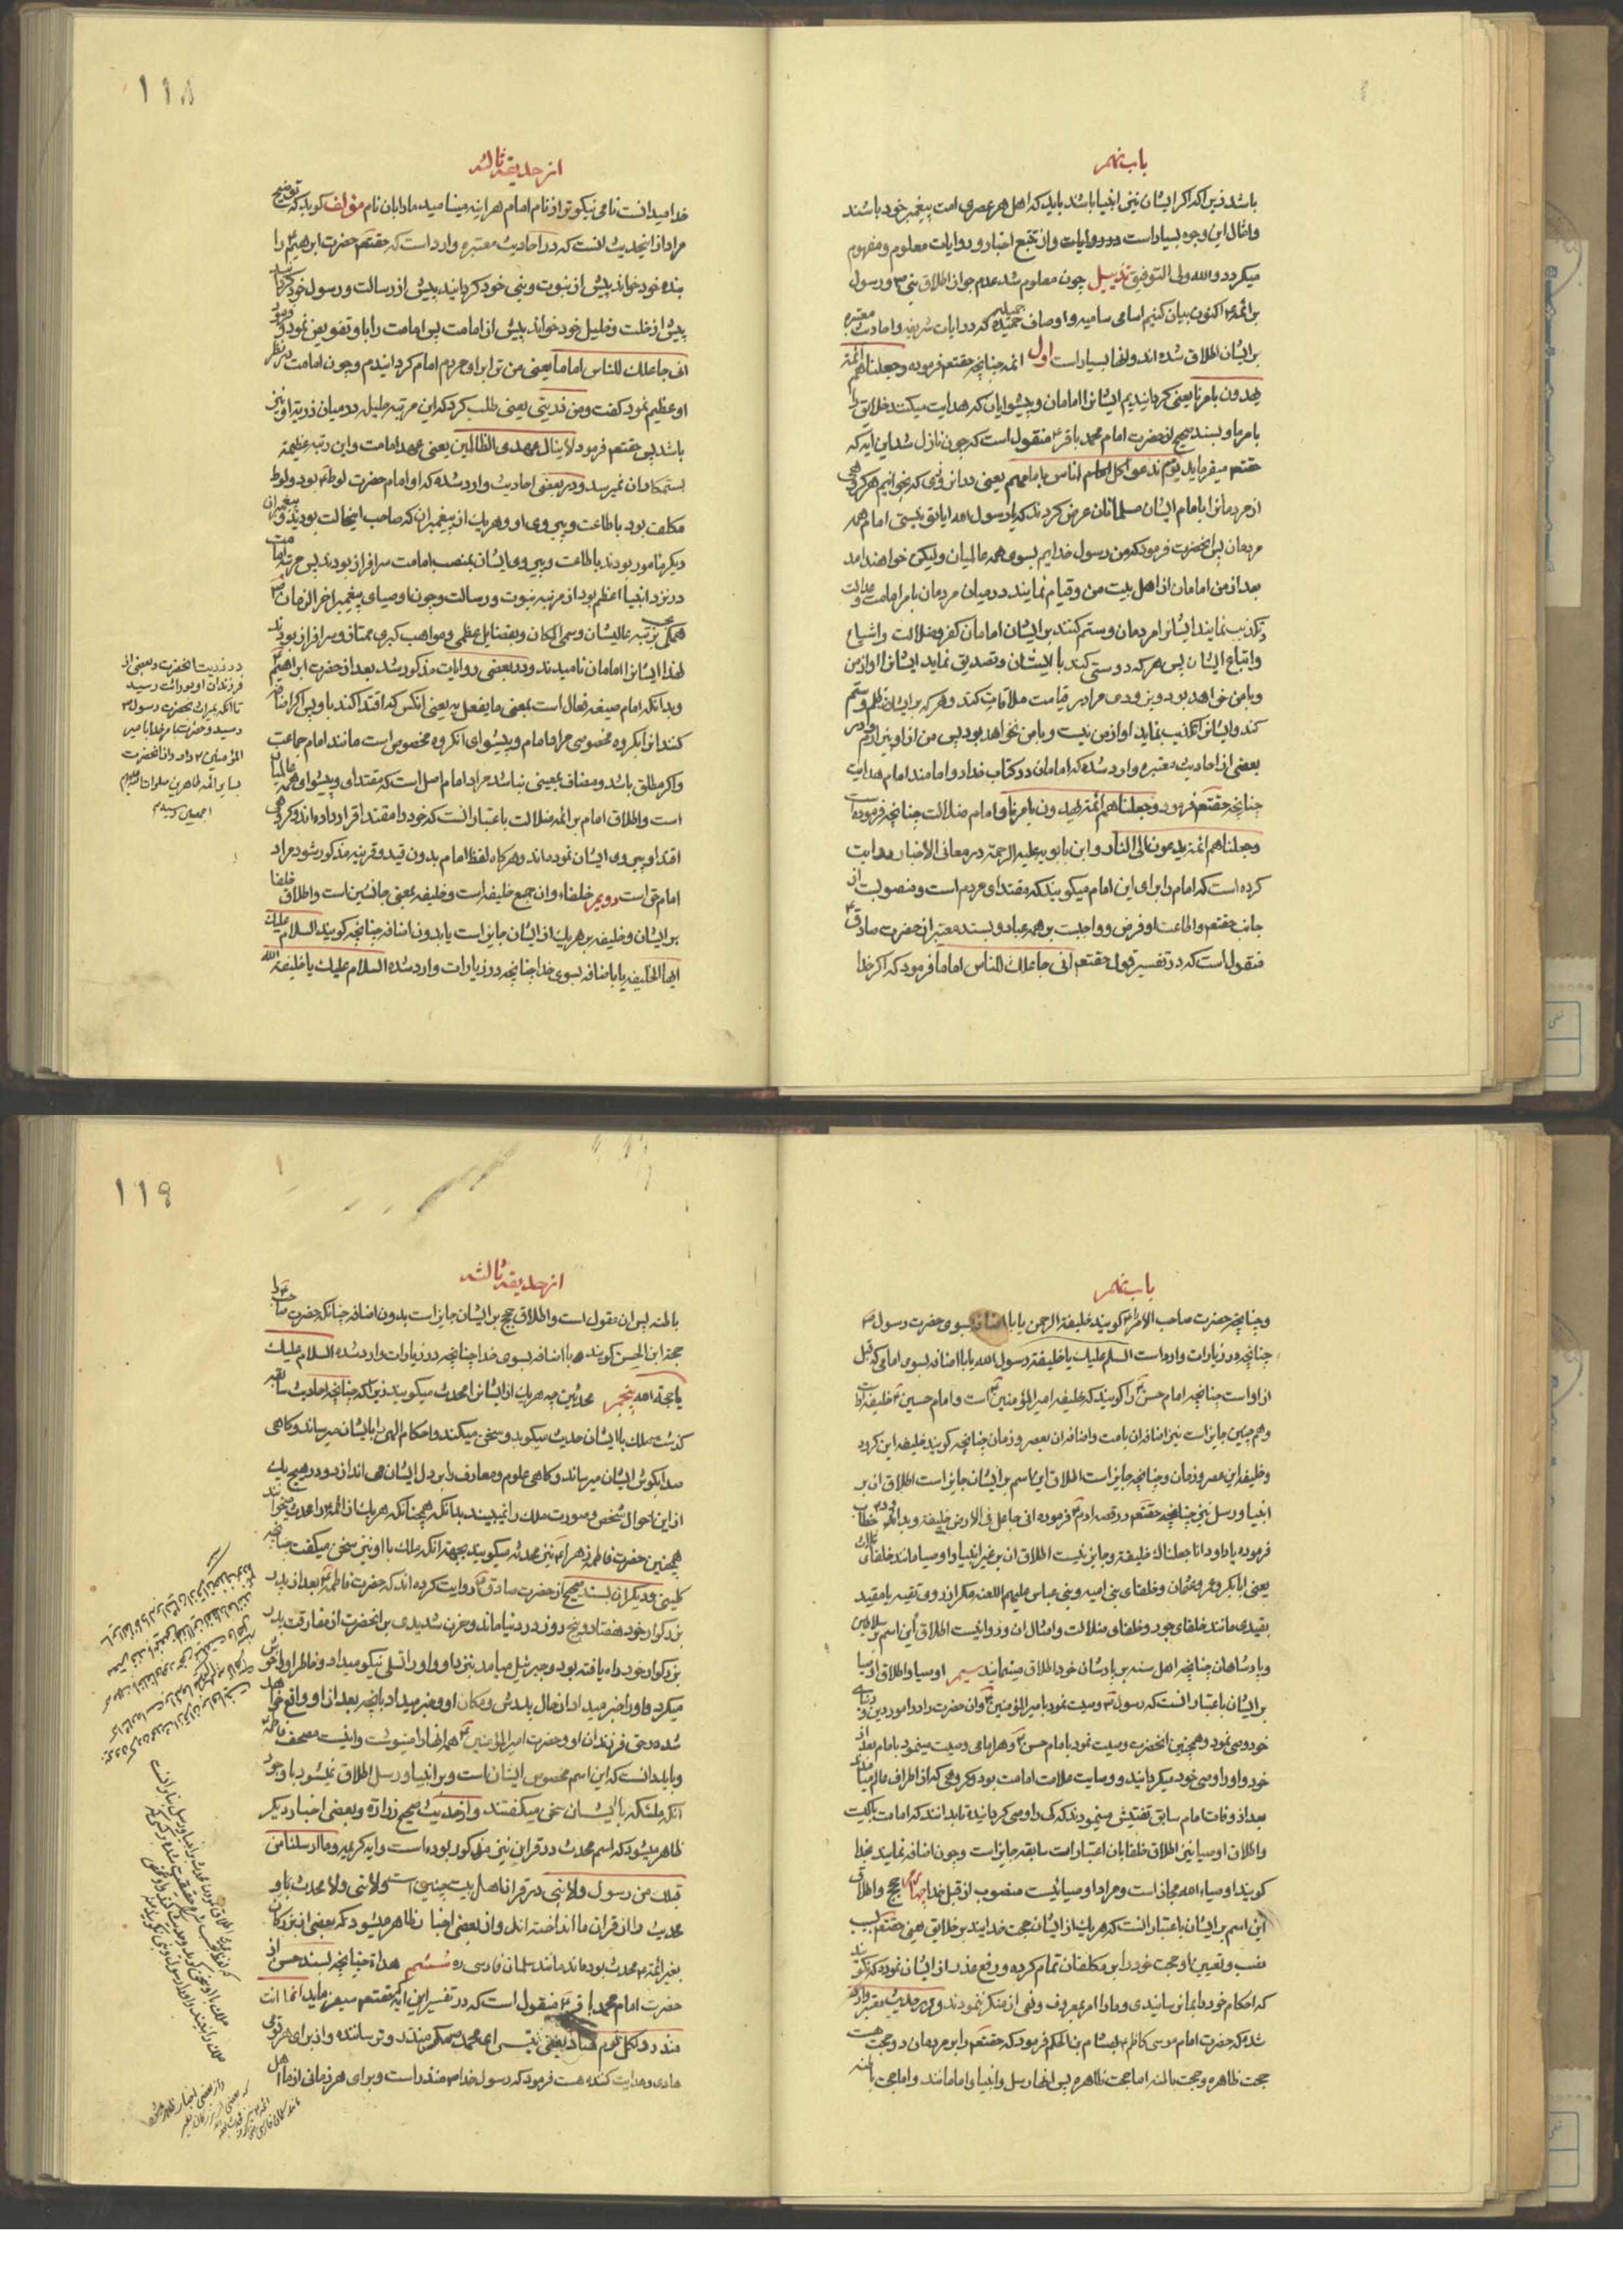 باب نهم
باشد زیرا که اگر ایشان نیز انبیا باشند باید که اهل هر عصری امت پیغمبر خود باشند
و امثال این وجوه بسیار است در روایات و از تتبع اخبار و روایات معلوم و مفهوم
میگردد والله ولی التوفیق تذییل چون معلوم شد عدم جواز اطلاق نبی و رسول
بر ائمه ع اکنون بیان کنیم اسامی سامیه و اوصاف حمیده جمیله که در ایات شریفه و احادیث معتبره
بر ایشان اطلاق شده اند و انها بسیار است اول ائمه چنانچه حقتعم فرموده وجعلناهم ائمة
یهدون بامرنا یعنی گردانیدیم ایشانرا امامان و پیشوایان که هدایت میکنند خلایق را
بامر ما و بسند صحیح از حضرت امام محمد باقر ع منقول است که چون نازل شد این ایه که
حقتعم میفرماید یوم ندعو کل اناس بامامهم یعنی در ان روزی که بخوانیم هر گروهی
از مردمانرا بامام ایشان مسلمانان عرض کردند که یا رسول الله ایا تو نیستی امام همه
مردمان پس انحضرت فرمود که من رسول خدایم بسوی همه عالمیان ولیکن خواهند امد
بعد از من امامان از اهل بیت من و قیام نمایند در میان مردمان بامر امامت و عدالت
و تکذیب نمایند ایشانرا مردمان و ستم کنند بر ایشان امامان کفر و ضلالت و اشیاع
و اتباع ایشان پس هر که دوستی کند با ایشان و تصدیق نماید ایشانرا او از من
و با من خواهد بود و بزودی مرا در قیامت ملاقات کند و هر که بر ایشان ظلم و ستم
کند و ایشانرا تکذیب نماید او از من نیست و با من نخواهد بود پس من از او بیزارم و در
بعضی از احادیث معتبره وارد شده که امامان در کتاب خدا دو امامند امام هدایت
چنانچه حقتعم فرمود وجعلناهم ائمة یهدون بامرنا و امام ضلالت چنانچه فرموده است
وجعلناهم ائمة یدعون الی النار و ابن بابویه علیه الرحمة در معانی الاخبار روایت
کرده است که امام را برای این امام میگویند که مقتدای مردم است و منصوبست از
جانب حقتعم و اطاعت او فرض و واجبست بر همه عباد و بسند معتبر از حضرت صادق ع
منقول است که در تفسیر قول حقتعم انی جاعلک للناس اماما فرمود که اگر خدا
۱۱۸
از حدیقه ثالثه
خدا میدانست نامی نیکوتر از نام امام هر اینه مینامید ما را بان نام مؤلف گوید که توضیح
مراد از این حدیث انست که در احادیث معتبره وارد است که حقتعم حضرت ابرهیم ع را
بنده خود خواند پیش از نبوت و نبی خود گردانید پیش از رسالت و رسول خود گردانید
پیش از خلت و خلیل خود خواند پیش از امامت پس امامت را باو تفویض نمود و فرمود
انی جاعلک للناس اماما یعنی من ترا برای مردم امام گردانیدم و چون امامت در نظر
او عظیم نمود گفت ومن ذریتی یعنی طلب کرد که این مرتبه جلیله در میان ذریه او نیز
باشد پس حقتعم فرمود لا ینال عهدی الظالمین یعنی عهد امامت و این رتبه عظیمه
بستمکاران نمیرسد و در بعضی احادیث وارد شده که او امام حضرت لوط ع بود و لوط
مکلف بود باطاعت و پیروی او و هر یک از پیغمبران که صاحب اینحالت بودند و پیغمبران
دیگر مامور بودند باطاعت و پیروی ایشان بمنصب امامت سرافراز بودند پس مرتبه امامت
در نزد انبیا اعظم بود از مرتبه نبوت و رسالت و چون اوصیای پیغمبر اخر الزمان ص
همگی برتبه عالیشان و سمی المکان و بفضایل عظمی و مواهب کبری ممتاز و سرافراز بودند
لهذا ایشانرا امامان نامیدند و در بعضی روایات مذکور شد بعد از حضرت ابراهیم ع
و بدانکه امام صیغه فعال است بمعنی ما یفعل به یعنی انکس که اقتدا کنند باو پس اگر اضافه
کنند انرا بگروه مخصوصی مراد امام و پیشوای انگروه مخصوص است مانند امام جماعت
و اگر مطلق باشد و مضاف بمعینی نباشد مراد امام اصل است که مقتدای و پیشوای همه عالمیان
است و اطلاق امام بر ائمه ضلالت باعتبار انست که خود را مقتدا قرار داده اند و گروهی
اقتدا و پیروی ایشان نموده اند و هر گاه لفظ امام بدون قید و قرینه مذکور شود مراد
امام حق است دویم خلفاء و ان جمع خلیفه است و خلیفه بمعنی جانشین است و اطلاق خلفا
بر ایشان و خلیفه بر هر یک از ایشان جایز است یا بدون اضافه چنانچه گویند السلام علیک
ایها الخلیفه یا باضافه بسوی خدا چنانچه در زیارات وارد شده السلام علیک یا خلیفة الله
در ذریت انحضرت و بعضی از
فرزندان او بوراثت رسید
تا انکه بمیراث بحضرت رسول ص
رسید و حضرت بامر خدا بامیر
المؤمنین ع داد و از انحضرت
بسایر ائمه طاهرین صلوات الله علیهم
اجمعین رسید
باب نهم
و چنانچه حضرت صاحب الامر را ع گویند خلیفة الرحمن یا باضافه بسوی حضرت رسول ص
چنانچه در زیارات وارد است السلم علیک یا خلیفة رسول الله یا باضافه بسوی امامی که قبل
از او است چنانچه امام حسن ع را گویند که خلیفه امیرالمؤمنین ع است و امام حسین ع خلیفه
و هم چنین جایز است نیز اضافه ان بامت و اضافه ان بعصر و زمان چنانچه گویند خلیفه این گروه
و خلیفه این عصر و زمان و چنانچه جایز است اطلاق این اسم بر ایشان جایز است اطلاق ان بر
انبیا و رسل نیز چنانچه حقتعم در قصه ادم ع فرموده انی جاعل فی الارض خلیفه و بداود ع خطاب
فرموده یا داود انا جعلناک خلیفة و جایز نیست اطلاق ان بر غیر انبیا و اوصیا مانند خلفای ثلاث
یعنی ابابکر و عمر و عثمان و خلفای بنی امیه و بنی عباس علیهم اللعنه مگر از روی تقیه یا مقید
بقیدی مانند خلفای جور و خلفای ضلالت و امثال ان و روا نیست اطلاق این اسم بر سلاطین
و پادشاهان چنانچه اهل سنه بر پادشان خود اطلاق مینمایند سیم اوصیا و اطلاق اوصیا
بر ایشان باعتبار انست که رسول ص وصیت نمود بامیرالمؤمنین ع و ان حضرت را در امور دین و دنیای
خود وصی نمود و همچنین انحضرت وصیت نمود بامام حسن ع و هر امامی وصیت مینمود بامام بعد از
خود و او را وصی خود میگردانید و وصایت علامت امامت بود و گروهی که از اطراف عالم میامدند
بعد از وفات امام سابق تفتیش مینمودند که کی را وصی گردانیده تا بدانند که امامت با کیست
و اطلاق اوصیا نیز اطلاق خلفا بان اعتبارات سابقه جایز است و چون اضافه نمایند بخدا
گویند اوصیاء الله مجاز است و مراد اوصیائیست منصوب از قبل خدا چهارم حجج و اطلاق
این اسم بر ایشان باعتبار انست که هر یک از ایشان حجت خدایند بر خلایق یعنی حقتعم بسبب
نصب و تعیین او حجت خود را بر مکلفان تمام کرده و رفع عذر از ایشان نموده که نگویند
که احکام خود را بما نرسانیدی و ما را امر بمعروف و نهی از منکر ننمودند و در حدیث معتبر وارد
شده که حضرت امام موسی کاظم ع بهشام بن الحکم فرمود که حقتعم را بر مردمان دو حجت هست
حجت ظاهره و حجت باطنه اما حجت ظاهره پس انها رسل و انبیا و امامانند و اما حجت باطنه
۱۱۹
از حدیقه ثالثه
باطنه پس ان عقول است و اطلاق حجج بر ایشان جایز است بدون اضافه چنانکه حضرت صاحب را
حجة ابن الحسن گویند و باضافه بسوی خدا چنانچه در زیارات وارد شده السلام علیک
یا حجة الله پنجم محدثین چه هر یک از ایشانرا محدث میگویند زیرا که چنانچه در احادیث سابقه
گذشت ملک با ایشان حدیث میگوید و سخن میکند و احکام الهی را بایشان میرساند و گاهی
صدا بگوش ایشان میرساند و گاهی علوم و معارف را بر دل ایشان می اندازد و در هیچ یک
از این احوال شخص و صورت ملک را نمیبینند بدانکه همچنانکه هر یک از ائمه را محدث میخوانند
همچنین حضرت فاطمه زهرا ع نیز محدثه میگویند بجهة انکه ملک با او نیز سخن میگفت چنانچه
کلینی و دیگران بسند صحیح از حضرت صادق ع روایت کرده اند که حضرت فاطمه ع بعد از پدر
بزرگوار خود هفتاد و پنج روز در دنیا ماند و حزن شدیدی بر انحضرت از مفارقت پدر
بزرگوار خود راه یافته بود و جبرئیل میامد بنزد او و او را تسلی نیکو میداد و خاطر او را خوش
میکرد و او را خبر میداد از حال پدرش و مکان او و خبر میداد بانچه بعد از او واقع خواهد
شد در حق فرزندان او و حضرت امیرالمؤمنین ع همه انها را مینوشت و اینست مصحف فاطمه ع
و باید دانست که این اسم مخصوص ایشان است و بر انبیا و رسل اطلاق نمیشود با وجود
انکه ملئکه با ایشان سخن میگفتند و از حدیث صحیح زراره و بعضی اخبار دیگر
ظاهر میشود که اسم محدث در قران نیز مذکور بوده است و ایه کریمه وما ارسلنا من
قبلک من رسول ولا نبی در قران اهل بیت چنین است ولا نبی ولا محدث باو
محدث را از قران ما انداخته اند و از بعضی اخبار ظاهر میشود که بعضی از بزرگان
بغیر ائمه ع محدث بوده اند مانند سلمان فارسی ره ششم هداة چنانچه بسند حسن از
حضرت امام محمد باقر ع منقول است که در تفسیر این ایه که حقتعم میفرماید انما انت
منذر ولکل قوم هاد یعنی نیستی ای محمد مگر منذر و ترساننده و از برای هر قومی
هادی و هدایت کننده هست فرمود که رسول خدا ص منذر است و برای هر زمانی از ما اهل